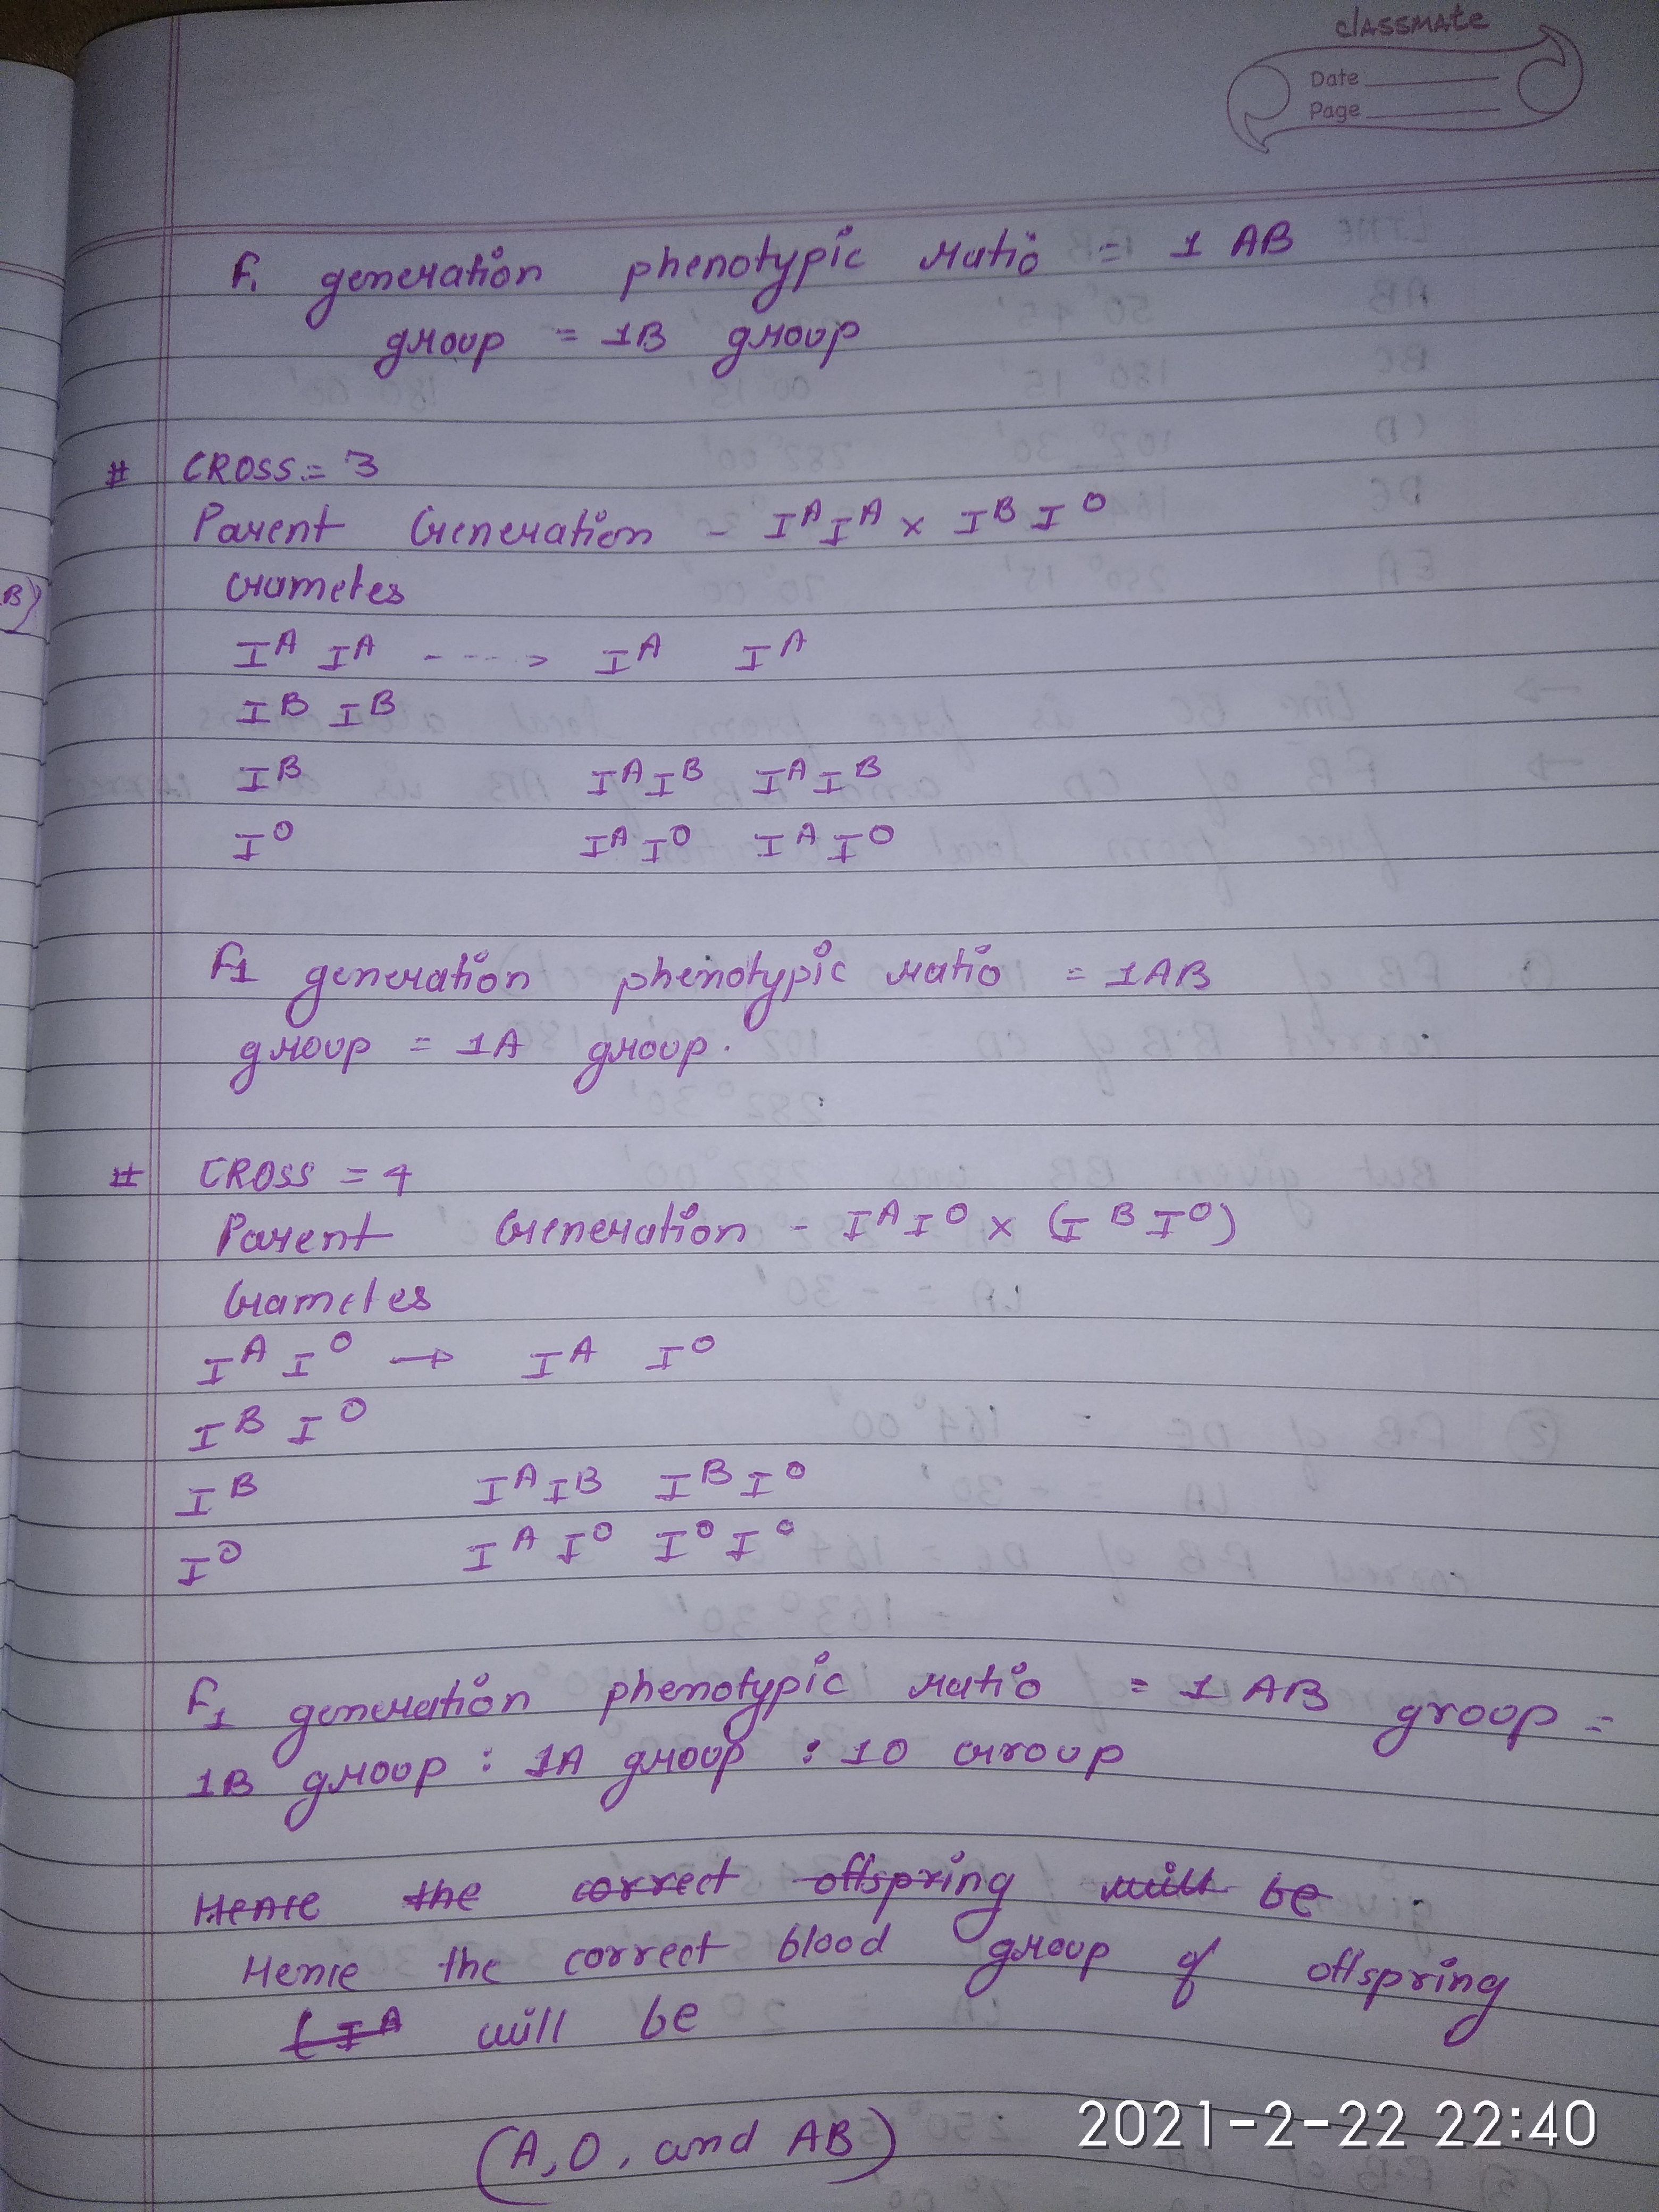 classmate
Date
Page
F1 generation phenotypic ratio = 1 AB
group = 1B group
B)
# CROSS = 3
Parent Generation - I^A I^A × I^B I^O
Gametes
I^A I^A ----> I^A I^A
I^B I^B
I^B I^A I^B I^A I^B
I^O I^A I^O I^A I^O
F1 generation phenotypic ratio = 1AB
group = 1A group.
# CROSS = 4
Parent Generation - I^A I^O × (I^B I^O)
Gametes
I^A I^O → I^A I^O
I^B I^O
I^B I^A I^B I^B I^O
I^O I^A I^O I^O I^O
F1 generation phenotypic ratio = 1 AB group =
1B group : 1A group : 1O Group
Hence the correct offspring will be
Hence the correct blood group of offspring
(I^A will be
(A, O, and AB)
2021-2-22 22:40